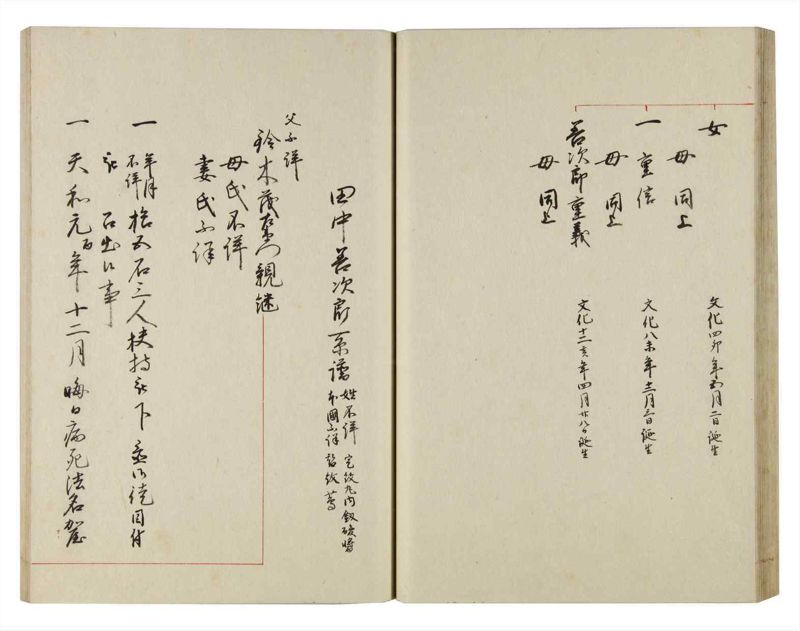 女
母同上
文化四卯年五月二日誕生
一重信
母同上
文化八未年十二月三日誕生
吾次郎重義
母同上
文化十二亥年四月廿八日誕生
田中吾次郎系譜
姓不詳 定紋丸内釼
本國不詳 替紋蔦
父不詳
鈴木茂左衛門親継
母氏不詳
妻氏不詳
一 年月不詳 拾五石三人扶持被下 御徒目付
被召出候事
一 天和元酉年十二月晦日病死法名